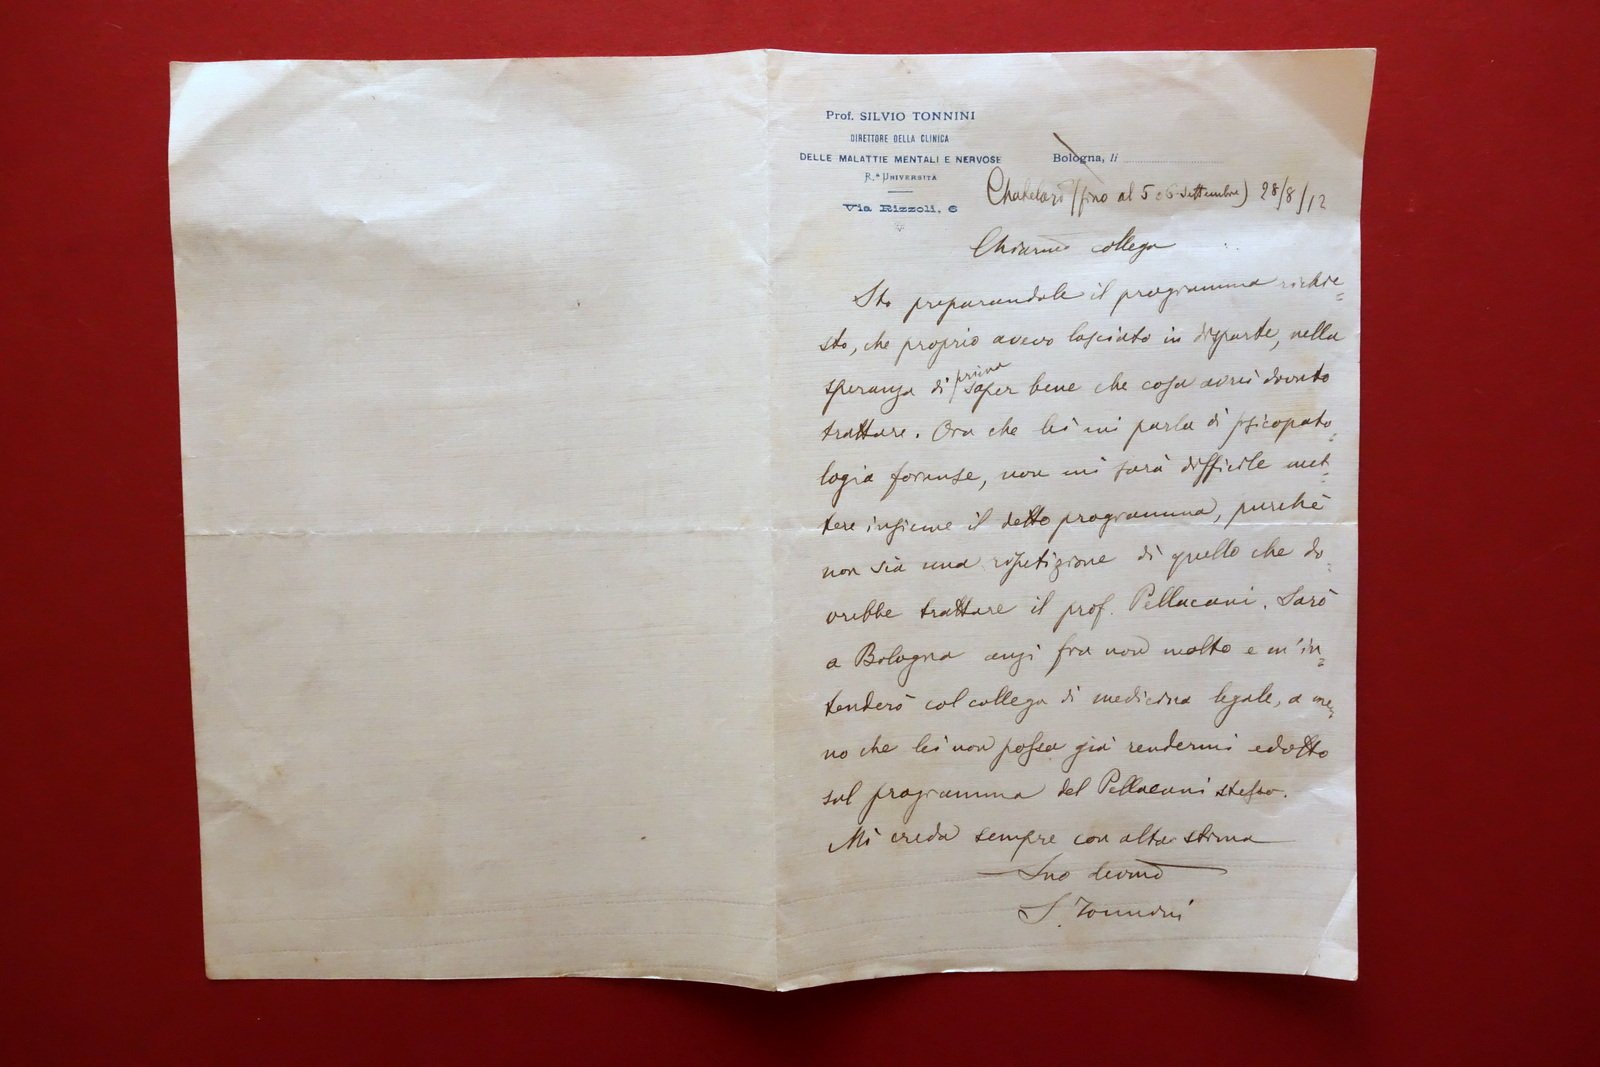 Prof. SILVIO TONNINI
DIRETTORE DELLA CLINICA
DELLE MALATTIE MENTALI E NERVOSE
R.ª UNIVERSITÀ
Via Rizzoli, 6
Bologna, li
(fino al 5 o 6 settembre) 28/8/12
Chiarmo collega
Sto preparandole il programma richie=
sto, che proprio avevo lasciato in disparte, nella
speranza di prima saper bene che cosa avrei dovuto
trattare. Ora che lei mi parla di psicopato=
logia forense, non mi sarà difficile met=
tere insieme il detto programma, purchè
non sia una ripetizione di quello che do=
vrebbe trattare il prof. Pellacani. Sarò
a Bologna anzi fra non molto e m'in=
tenderò col collega di medicina legale, a me=
no che lei non possa già rendermi edotto
sul programma del Pellacani stesso.
Mi creda sempre con alta stima
Suo devmo
S. Tonnini